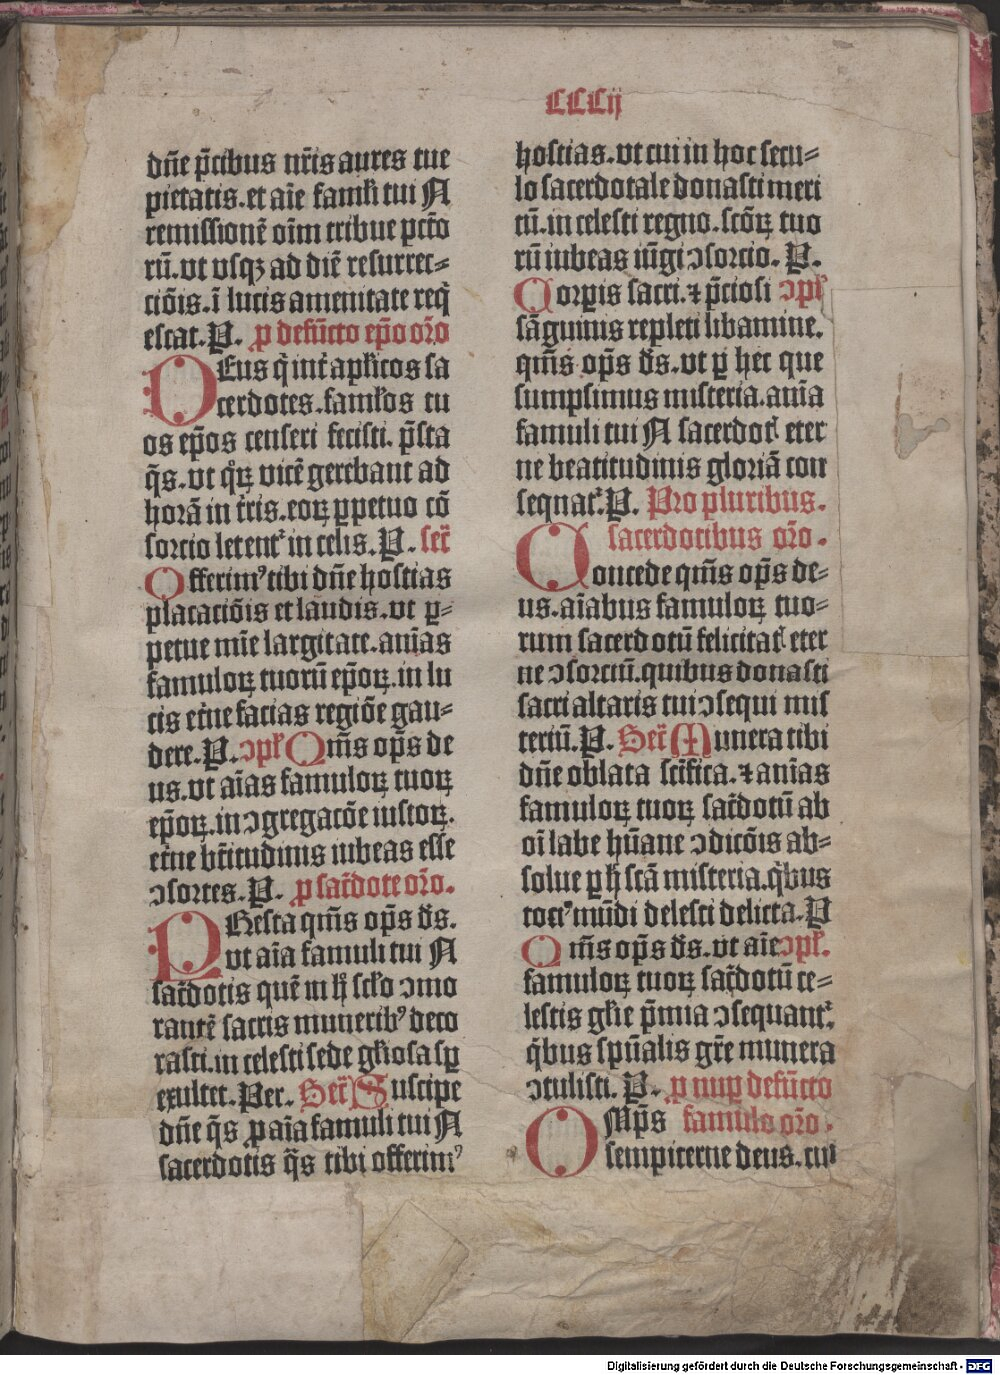 CCCij
dñe p̄cibus nr̄is aures tue
pietatis. et aīe famĺi tui N
remissionē oīm tribue pctō
rū. vt vsqꝫ ad diē resurrec⸗
ciōis. ī lucis amenitate req̄
escat. P. ꝓ defūcto ep̄o orō
DEus q̇ int̄ apl̄icos sa
cerdotes. famĺos tu
os ep̄os censeri fecisti. p̄sta
q̄s. vt qͦꝝ vicē gerebant ad
horā in t̄ris. eoꝝ ꝑpetuo cō
sorcio letentᷣ in celis. P. secr̄
Offerimꝰ tibi dñe hostias
placaciōis et laudis. vt ꝑ⸗
petue mīe largitate. animas
famuloꝝ tuorū ep̄oꝝ. in lu
cis et̄ne facias regiōe gau⸗
dere. P. ↄpl̄ Qm̄s op̄s de
us. vt aīas famuloꝝ tuoꝝ
ep̄oꝝ. in ↄgregacōe iustoꝝ.
et̄ne bt̄itudinis iubeas esse
ↄsortes. P. ꝓ sac̄dote orō.
PResta qm̄s op̄s ds̄.
vt aīa famuli tui N
sac̄dotis quē in hͦ scl̄o ↄmo
rantē sacris muneribꝰ deco
rasti. in celesti sede gl̄iosa sꝑ
exultet. Per. Secr̄ Suscipe
dñe q̄s ꝓ aīa famuli tui N
sacerdotis q̄s tibi offerimꝰ
hostias. vt cui in hoc secu⸗
lo sacerdotale donasti meri
tū. in celesti regno. scōꝝ tuo
rū iubeas iūgi ↄsorcio. P.
Corpis sacri. ⁊ p̄ciosi ↄpl̄
sāguinis repleti libamine.
qm̄s op̄s ds̄. vt ꝑ hec que
sumpsimus misteria. anīa
famuli tui N sacerdotꝭ eter
ne beatitudinis gloriā con
seqnatᷣ. P. Pro pluribus.
sacerdotibus orō.
Concede qm̄s op̄s de⸗
us. aīabus famuloꝝ tuo⸗
rum sacerdotū felicitatꝭ eter
ne ↄsorciū. quibus donasti
sacri altaris tui ↄsequi mis
teriū. P. Secr̄ Munera tibi
dñe oblata scīfica. ⁊ animas
famuloꝝ tuoꝝ sac̄dotū ab
oī labe hūane ↄdicōis ab⸗
solue ꝑ hͨ scā misteria. q̇bus
totiꝰ mūdi delesti delicta. P
Qm̄s op̄s ds̄. vt aīe ↄpl̄.
famuloꝝ tuoꝝ sac̄dotū ce⸗
lestis gl̄ie p̄mia ↄsequantᷣ.
q̇bus spūalis gr̄e munera
ↄtulisti. P. ꝓ nuꝑ defūcto
OMp̄s famulo orō.
sempiterne deus. cui
Digitalisierung gefördert durch die Deutsche Forschungsgemeinschaft - DFG